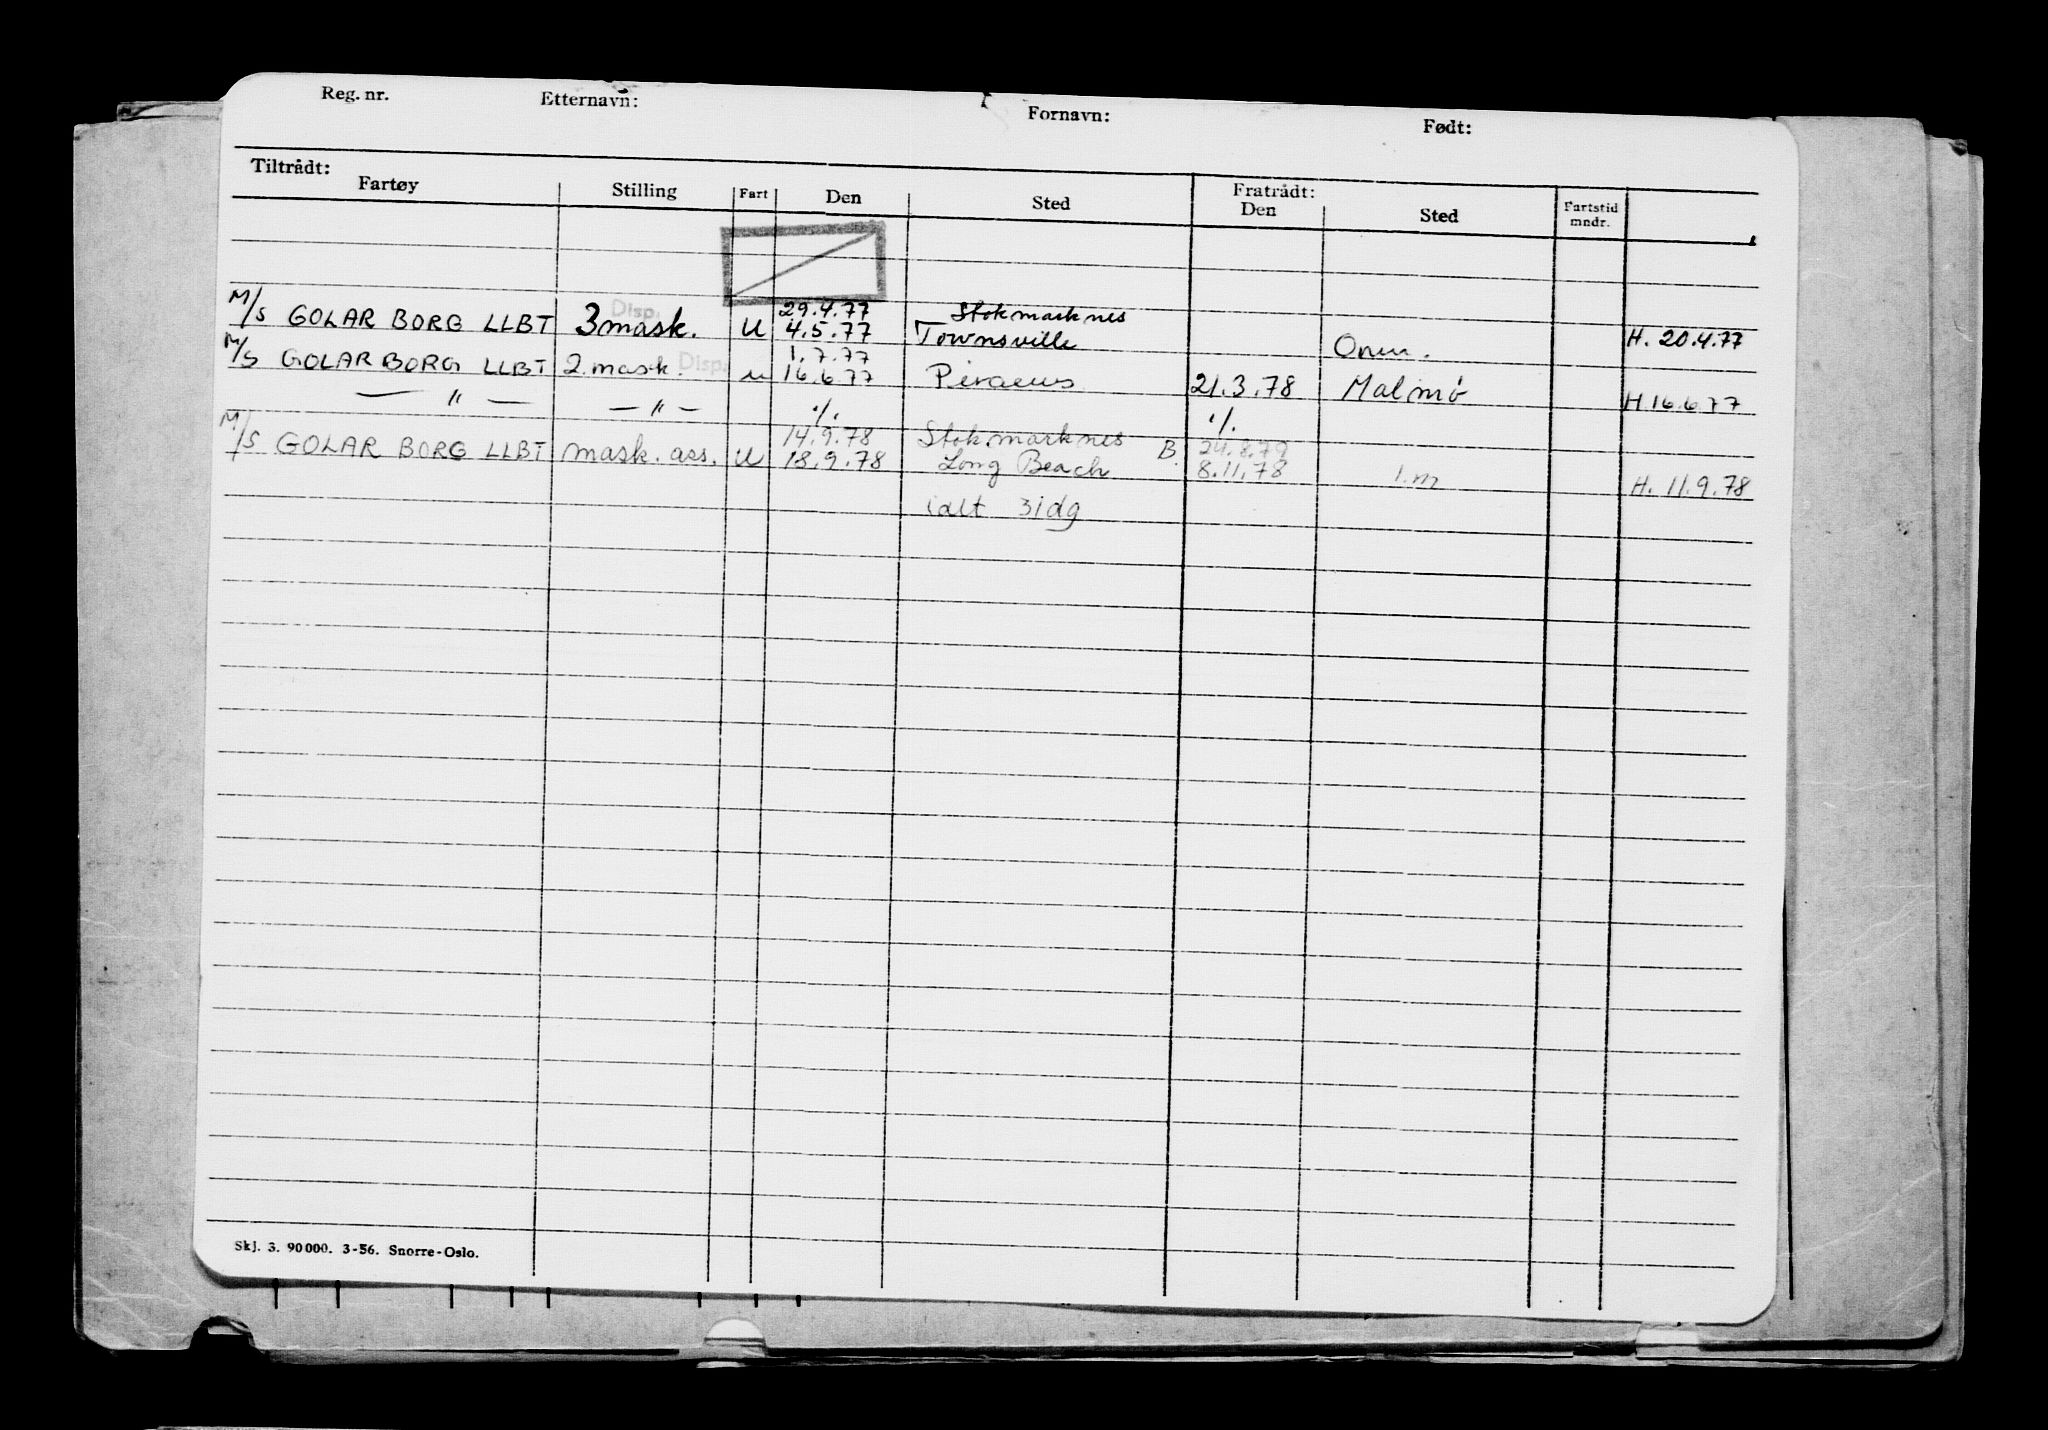 Reg. nr. Etternavn: Fornavn: Født:
Tiltrådt: Fratrådt:
Fartøy Stilling Fart Den Sted Den Sted Fartstid mndr.
Disp. 29.4.77 Stokmarknes
M/S GOLAR BORG LLBT 3 mask. U 4.5.77 Townsville Omm. H. 20.4.77
1.7.77
M/S GOLAR BORG LLBT 2. mask. Disp. U 16.6.77 Piraeus 21.3.78 Malmö H. 16.6.77
— " — — " — ./. ./.
14.9.78 Stokmarknes B. 24.8.79
M/S GOLAR BORG LLBT mask. ass. U 18.9.78 Long Beach 8.11.78 1.m H. 11.9.78
ialt 31dg
Skj. 3. 90000. 3-56. Snorre-Oslo.